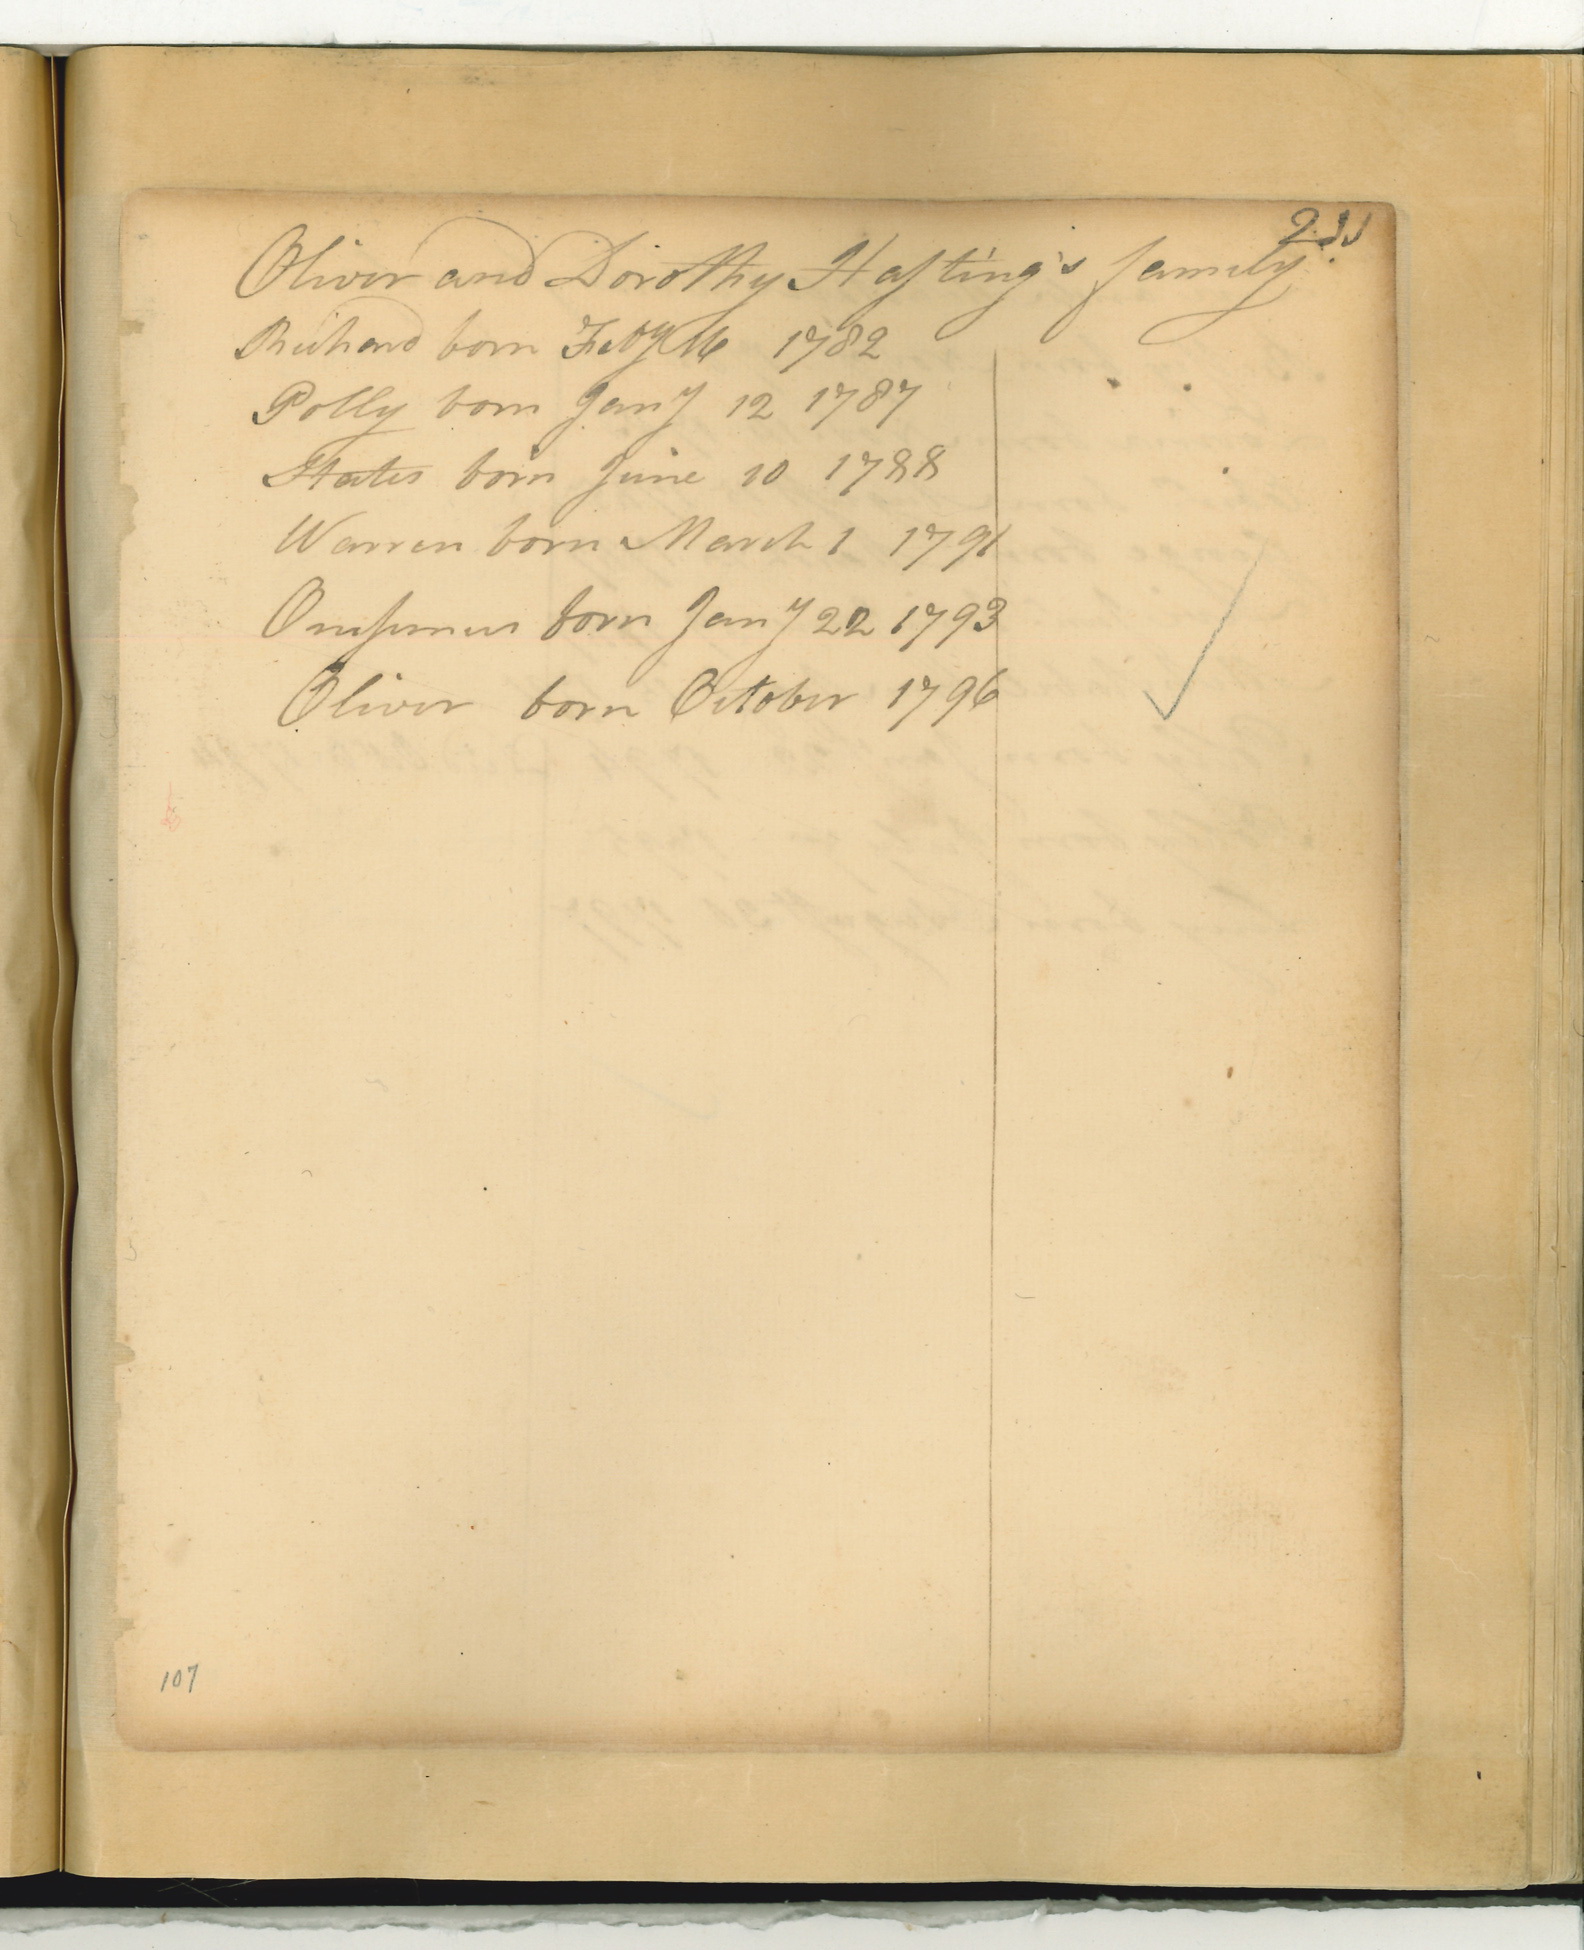 211
Oliver and Dorothy Hasting's family.
Richard born Feby 16 1782
Polly born Jany 12 1787
States born June 10 1788
Warren born March 1 1791
Onesimus born Jany 22 1793
Oliver born October 1796
107